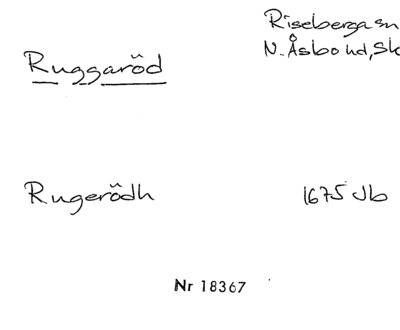 Risebergasn
Ruggaröd
N. Åsbo hd, Sk
Rugerödh 1675 Jb
Nr 18367